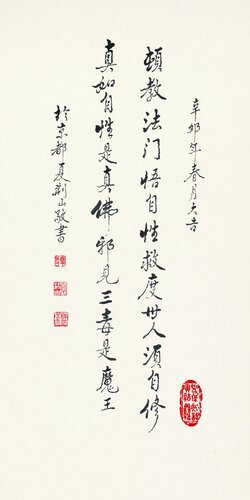 辛卯年春月大吉
頓教法门悟自性救度世人須自修
真如自性是真佛邪見三毒是魔王
於京都夏荆山敬書